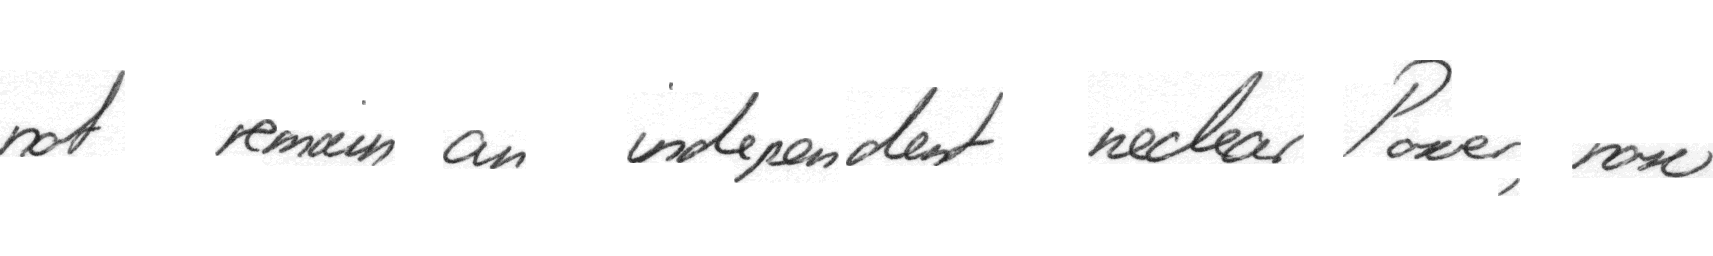 not remain an independent nuclear Power, now